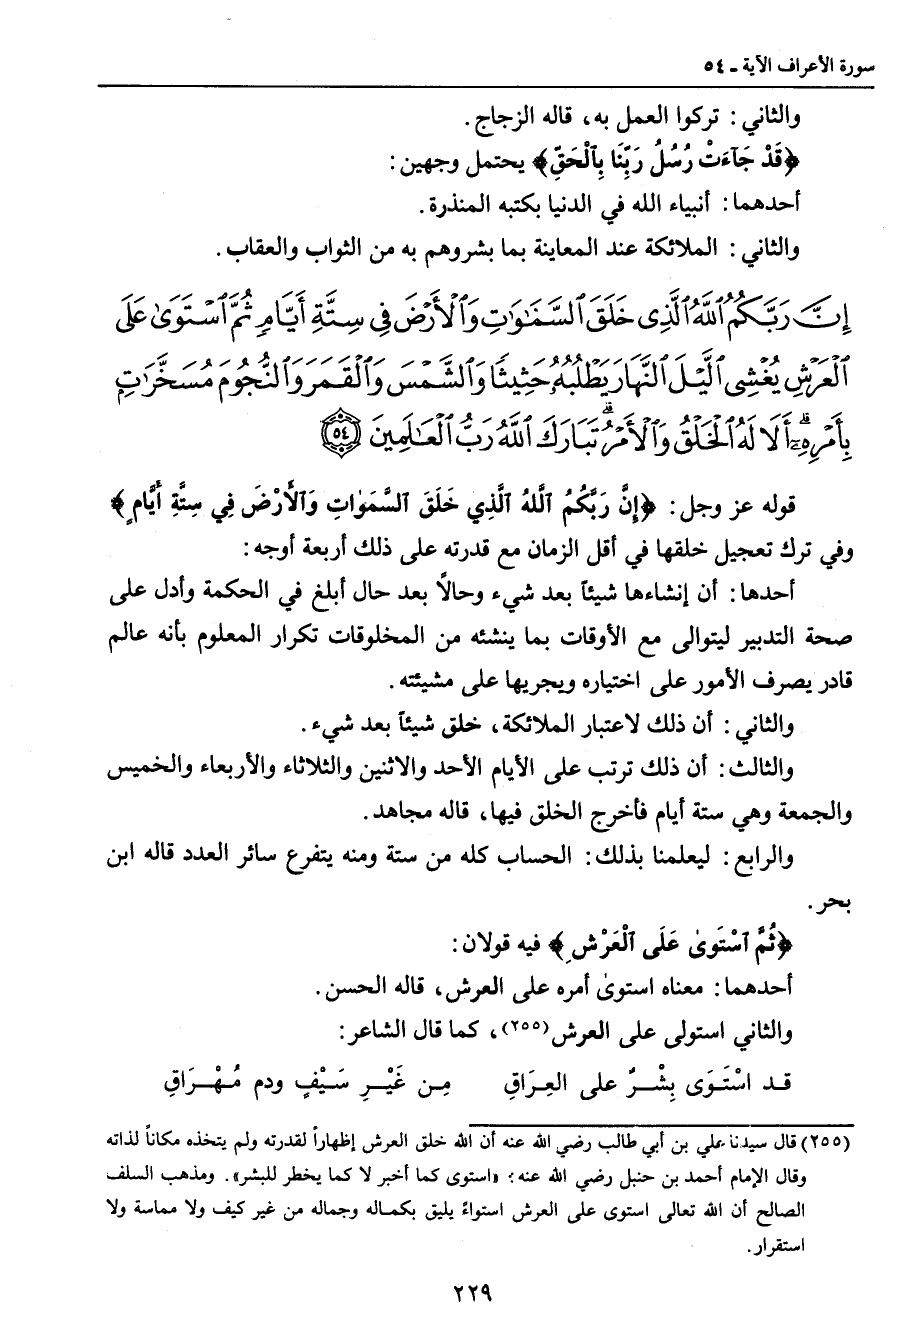 سورة الأعراف الآية ـ ٥٤
والثاني : تركوا العمل به، قاله الزجاج .
﴿قَدْ جَآءَتْ رُسُلُ رَبِّنَا بِالْحَقِّ﴾ يحتمل وجهين :
أحدهما : أنبياء الله في الدنيا بكتبه المنذرة .
والثاني : الملائكة عند المعاينة بما بشروهم به من الثواب والعقاب .
إِنَّ رَبَّكُمُ ٱللَّهُ ٱلَّذِى خَلَقَ ٱلسَّمَٰوَٰتِ وَٱلْأَرْضَ فِى سِتَّةِ أَيَّامٍ ثُمَّ ٱسْتَوَىٰ عَلَى
ٱلْعَرْشِ يُغْشِى ٱلَّيْلَ ٱلنَّهَارَ يَطْلُبُهُۥ حَثِيثًا وَٱلشَّمْسَ وَٱلْقَمَرَ وَٱلنُّجُومَ مُسَخَّرَٰتٍ
بِأَمْرِهِۦٓ ۗ أَلَا لَهُ ٱلْخَلْقُ وَٱلْأَمْرُ ۗ تَبَارَكَ ٱللَّهُ رَبُّ ٱلْعَٰلَمِينَ ٥٤
قوله عز وجل : ﴿إِنَّ رَبَّكُمُ ٱللَّهُ الَّذِي خَلَقَ السَّمَوَاتِ وَالْأَرْضَ فِي سِتَّةِ أَيَّامٍ﴾
وفي ترك تعجيل خلقها في أقل الزمان مع قدرته على ذلك أربعة أوجه :
أحدها : أن إنشاءها شيئاً بعد شيء وحالاً بعد حال أبلغ في الحكمة وأدل على
صحة التدبير ليتوالى مع الأوقات بما ينشئه من المخلوقات تكرار المعلوم بأنه عالم
قادر يصرف الأمور على اختياره ويجريها على مشيئته .
والثاني : أن ذلك لاعتبار الملائكة، خلق شيئاً بعد شيء .
والثالث : أن ذلك ترتب على الأيام الأحد والاثنين والثلاثاء والأربعاء والخميس
والجمعة وهي ستة أيام فأخرج الخلق فيها، قاله مجاهد.
والرابع : ليعلمنا بذلك : الحساب كله من ستة ومنه يتفرع سائر العدد قاله ابن
بحر .
﴿ثُمَّ ٱسْتَوَىٰ عَلَى الْعَرْشِ﴾ فيه قولان :
أحدهما : معناه استوىٰ أمره على العرش، قاله الحسن .
والثاني استولى على العرش(٢٥٥)، كما قال الشاعر :
قـد اسْتَـوَى بِشْـرٌ على العِـراقِ مِـن غَيْـرِ سَيْـفٍ ودم مُـهْـرَاقِ
(٢٥٥) قال سيدنا علي بن أبي طالب رضي الله عنه أن الله خلق العرش إظهاراً لقدرته ولم يتخذه مكاناً لذاته
وقال الإمام أحمد بن حنبل رضي الله عنه : «استوى كما أخبر لا كما يخطر للبشر». ومذهب السلف
الصالح أن الله تعالى استوى على العرش استواءً يليق بكماله وجماله من غير كيف ولا مماسة ولا
استقرار .
٢٢٩